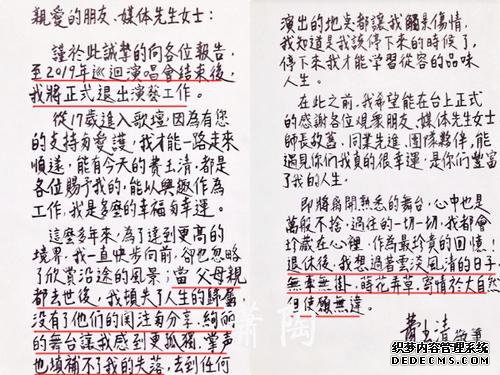 親愛的朋友、媒体先生女士：
謹於此誠摯的向各位報告，
至2019年巡迴演唱會結束後，
我將正式退出演藝工作。
從17歲進入歌壇，因為有您
的支持与愛護，我才能一路走來
順遂，能有今天的費玉清，都是
各位賜予我的，能以興趣作為
工作，我是多麼的幸福与幸運。
這麼多年來，為了達到更高的
境界，我一直快步向前，卻也忽略
了欣賞沿途的風景；當父母親
都去世後，我頓失了人生的歸屬，
沒有了他們的関注与分享，絢麗
的舞台讓我感到更孤獨，掌声
也填補不了我的失落，去到任何
演出的地点都讓我觸景傷情，
我知道是我該停下來的時候了，
停下來我才能学習從容的品味
人生。
在此之前，我希望能在台上正式
的感謝各位观衆朋友、媒体先生女士
師長故舊、同業先進、團隊夥伴，能
遇見你们我真的很幸運，是你們豐富
了我的人生。
即將離開熟悉的舞台，心中也是
萬般不捨，過往的一切一切，我都會
珍藏在心裡，作為最珍貴的回憶！
退休後，我想過著雲淡風清的日子，
無事無掛，蒔花弄草，寄情於大自然
但使願無違。
費玉清 敬筆
織夢内容管理系統
DEDECMS.COM